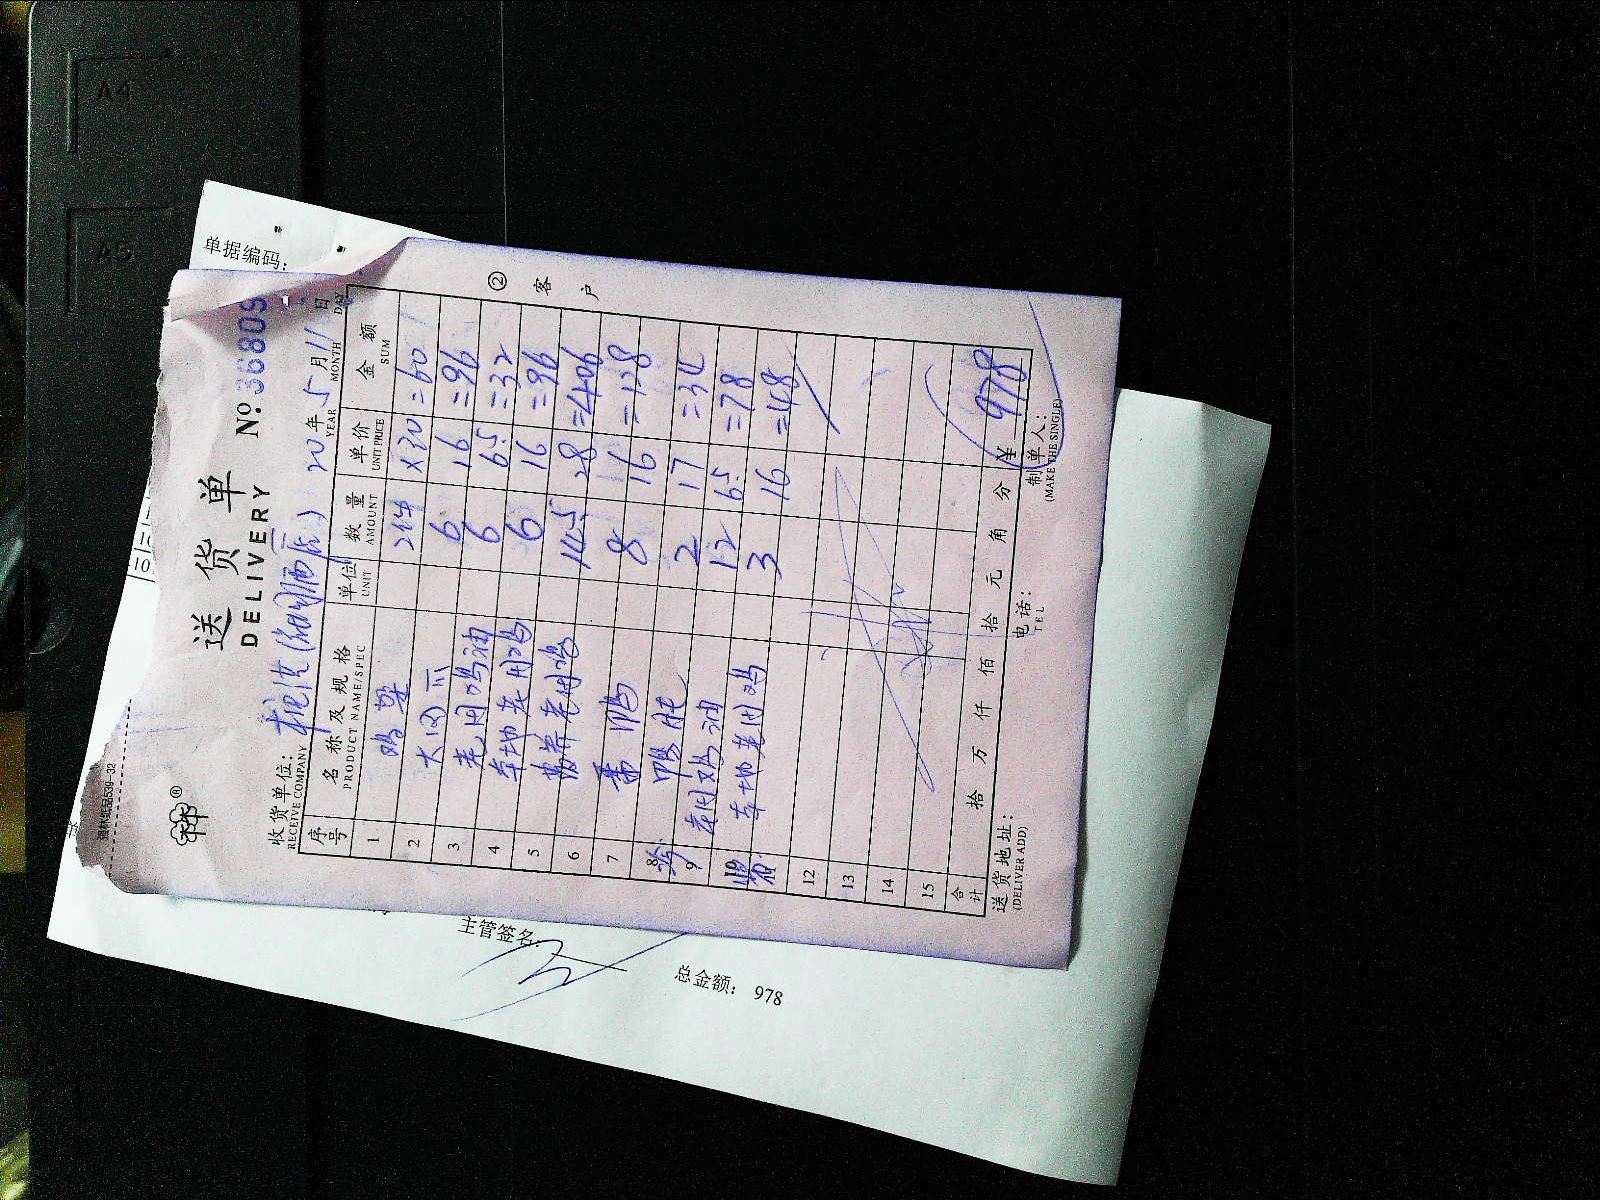 A4
A5
单据编码：
10
强林纸品539-32
®
送货单
DELIVERY
№ 36809
收货单位：
RECEIVE COMPANY
20年5月11日
YEAR MONTH DAY
序号 名称及规格 单位 数量 单价 金额
PRODUCT NAME/SPEC UNIT AMOUNT UNIT PRICE SUM
1 鸡架 2件 ×30 =60
2 6 16 =96
3 老母鸡油 6 6.5 =32
4 本地老母鸡 6 16 =96
5 老母鸡 14.5 28 =406
6 番鸭 8 16 =128
7 鸭肫 2 17 =34
8 老母鸡油 12 6.5 =78
9 本地老母鸡 3 16 =48
10
12
13
14
15
合计 拾 万 仟 佰 拾 元 角 分 ¥ 978
送货地址：
(DELIVER ADD)
电话：
TEL
制单人：
(MAKE THE SINGLE)
② 客户
主管签名：
总金额： 978